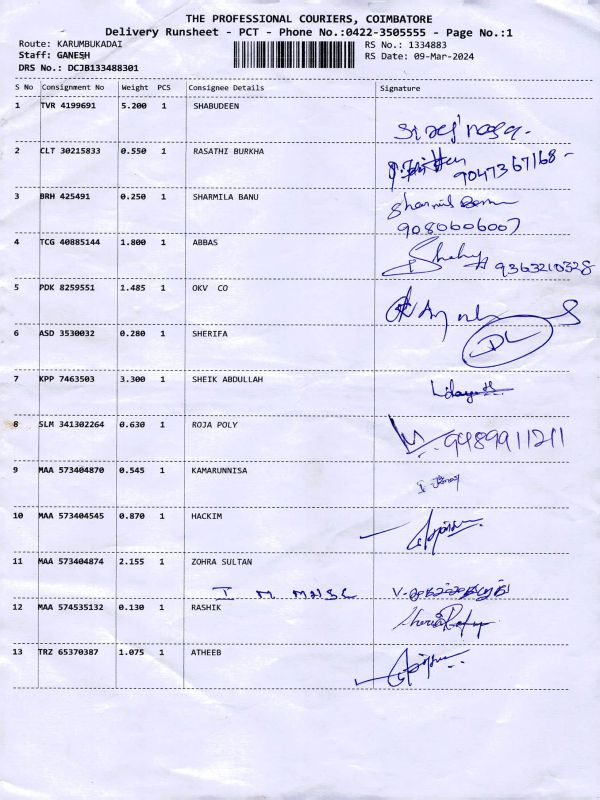 THE PROFESSIONAL COURIERS, COIMBATORE
Delivery Runsheet - PCT - Phone No.:0422-3505555 - Page No.:1
Route: KARUMBUKADAI
RS No.: 1334883
Staff: GANESH
RS Date: 09-Mar-2024
DRS No.: DCJB133488301
S No Consignment No Weight PCS Consignee Details Signature
1 TVR 4199691 5.200 1 SHABUDEEN
2 CLT 30215833 0.550 1 RASATHI BURKHA
9047367168 -
3 BRH 425491 0.250 1 SHARMILA BANU
9080606007
4 TCG 40885144 1.800 1 ABBAS
9363210328
5 PDK 8259551 1.485 1 OKV CO
6 ASD 3530032 0.280 1 SHERIFA
DL
7 KPP 7463503 3.300 1 SHEIK ABDULLAH
8 SLM 341302264 0.630 1 ROJA POLY
9489911211
9 MAA 573404870 0.545 1 KAMARUNNISA
10 MAA 573404545 0.870 1 HACKIM
11 MAA 573404874 2.155 1 ZOHRA SULTAN
12 MAA 574535132 0.130 1 RASHIK
13 TRZ 65370387 1.075 1 ATHEEB